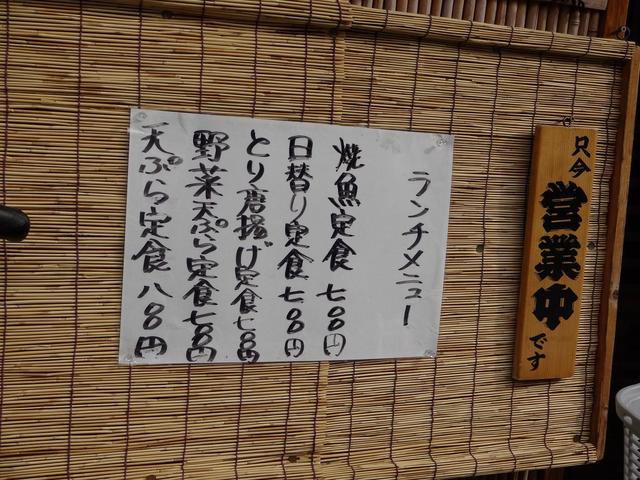 只今営業中です
ランチメニュー
焼魚定食 七〇〇円
日替り定食 七〇〇円
とり唐揚げ定食七〇〇円
野菜天ぷら定食七〇〇円
天ぷら定食 八〇〇円